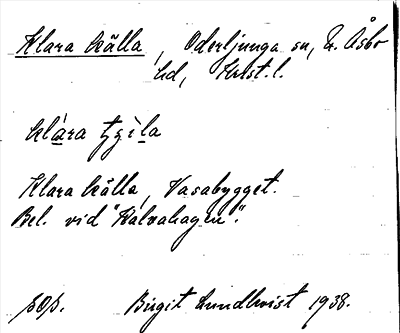 Klara källa, Oderljunga sn, N. Åsbo
hd, Krist. l.
klára
Klara källa, Vasabygget.
Bel. vid "Kalvahagen".
pop. Birgit Lundkvist 1938.